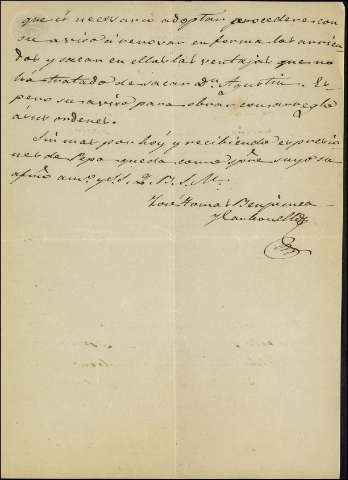 que és necesario adoptar procederé con
su aviso á renovar en forma los arrien-
dos y sacar en ellos las ventajas que no
há tratado de sacar Dn Agustin. Es-
pero su aviso para obrar con arreglo
a sus ordenes.
Sin mas por hoy y recibiendo espresio
nes de Pepa queda como spre suyo su
afmo amo y S. S. Q. B. S. M.
José Tomas Benjumea